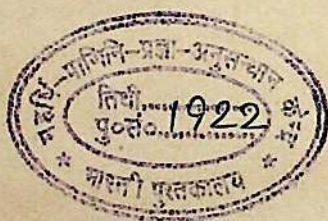 महर्षि-पाणिनि-प्रज्ञा-अनुसन्धान केन्द्र
तिथी..............
पु०सं०.1922
* भारती पुस्तकालय *